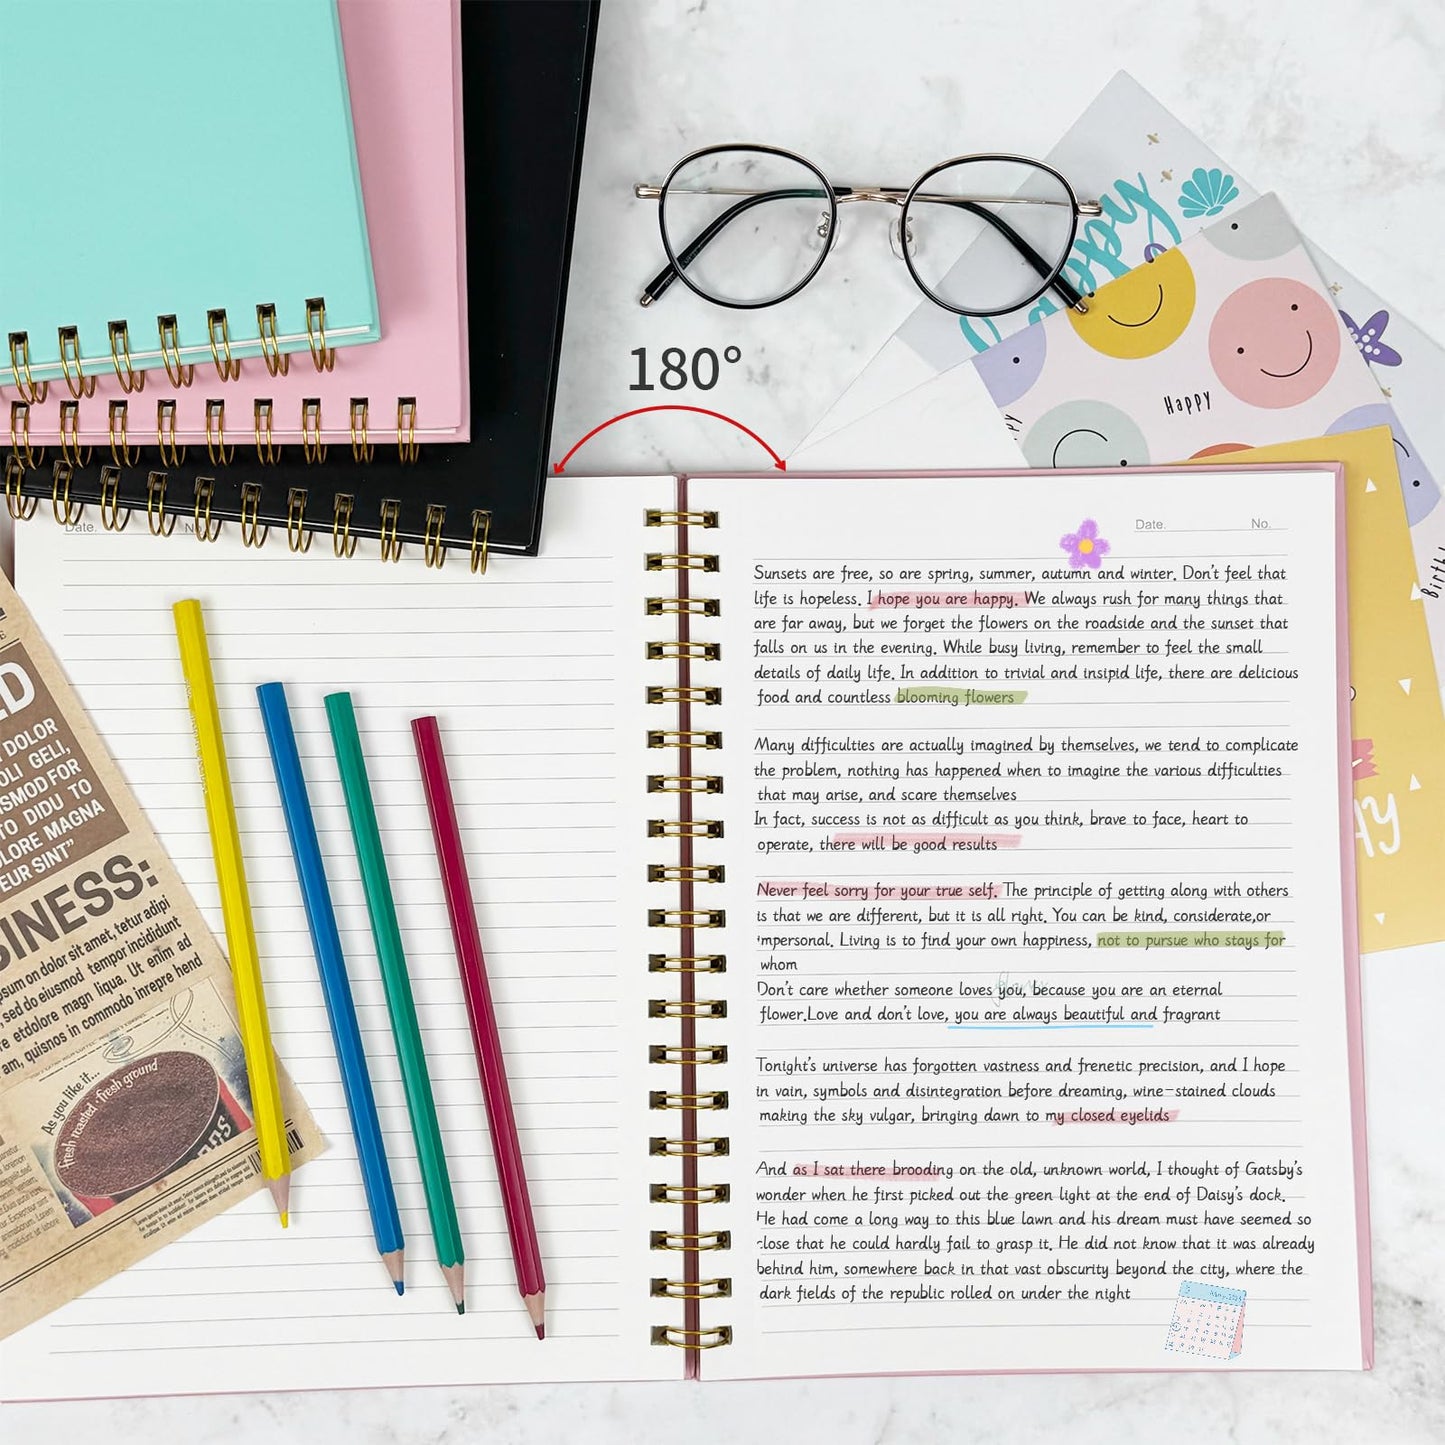 180°
Happy
Date.
No.
Date.
No.
Sunsets are free, so are spring, summer, autumn and winter. Don't feel that
life is hopeless. I hope you are happy. We always rush for many things that
are far away, but we forget the flowers on the roadside and the sunset that
falls on us in the evening. While busy living, remember to feel the small
details of daily life. In addition to trivial and insipid life, there are delicious
food and countless blooming flowers
Many difficulties are actually imagined by themselves, we tend to complicate
the problem, nothing has happened when to imagine the various difficulties
that may arise, and scare themselves
In fact, success is not as difficult as you think, brave to face, heart to
operate, there will be good results
Never feel sorry for your true self. The principle of getting along with others
is that we are different, but it is all right. You can be kind, considerate,or
impersonal. Living is to find your own happiness, not to pursue who stays for
whom
Don't care whether someone loves you, because you are an eternal
flower.Love and don't love, you are always beautiful and fragrant
Tonight's universe has forgotten vastness and frenetic precision, and I hope
in vain, symbols and disintegration before dreaming, wine-stained clouds
making the sky vulgar, bringing dawn to my closed eyelids
And as I sat there brooding on the old, unknown world, I thought of Gatsby's
wonder when he first picked out the green light at the end of Daisy's dock.
He had come a long way to this blue lawn and his dream must have seemed so
close that he could hardly fail to grasp it. He did not know that it was already
behind him, somewhere back in that vast obscurity beyond the city, where the
dark fields of the republic rolled on under the night
DOLOR
OLI GELI,
SMOD FOR
TO DIDU TO
OLORE MAGNA
EUR SINT"
SINESS:
psum on dolor sit amet, tetur adipi
, sed do eiusmod tempor incididunt
re etdolore magn liqua. Ut enim ad
am, quisnos in commodo inrepre hend
As you like it...
fresh roasted. fresh ground